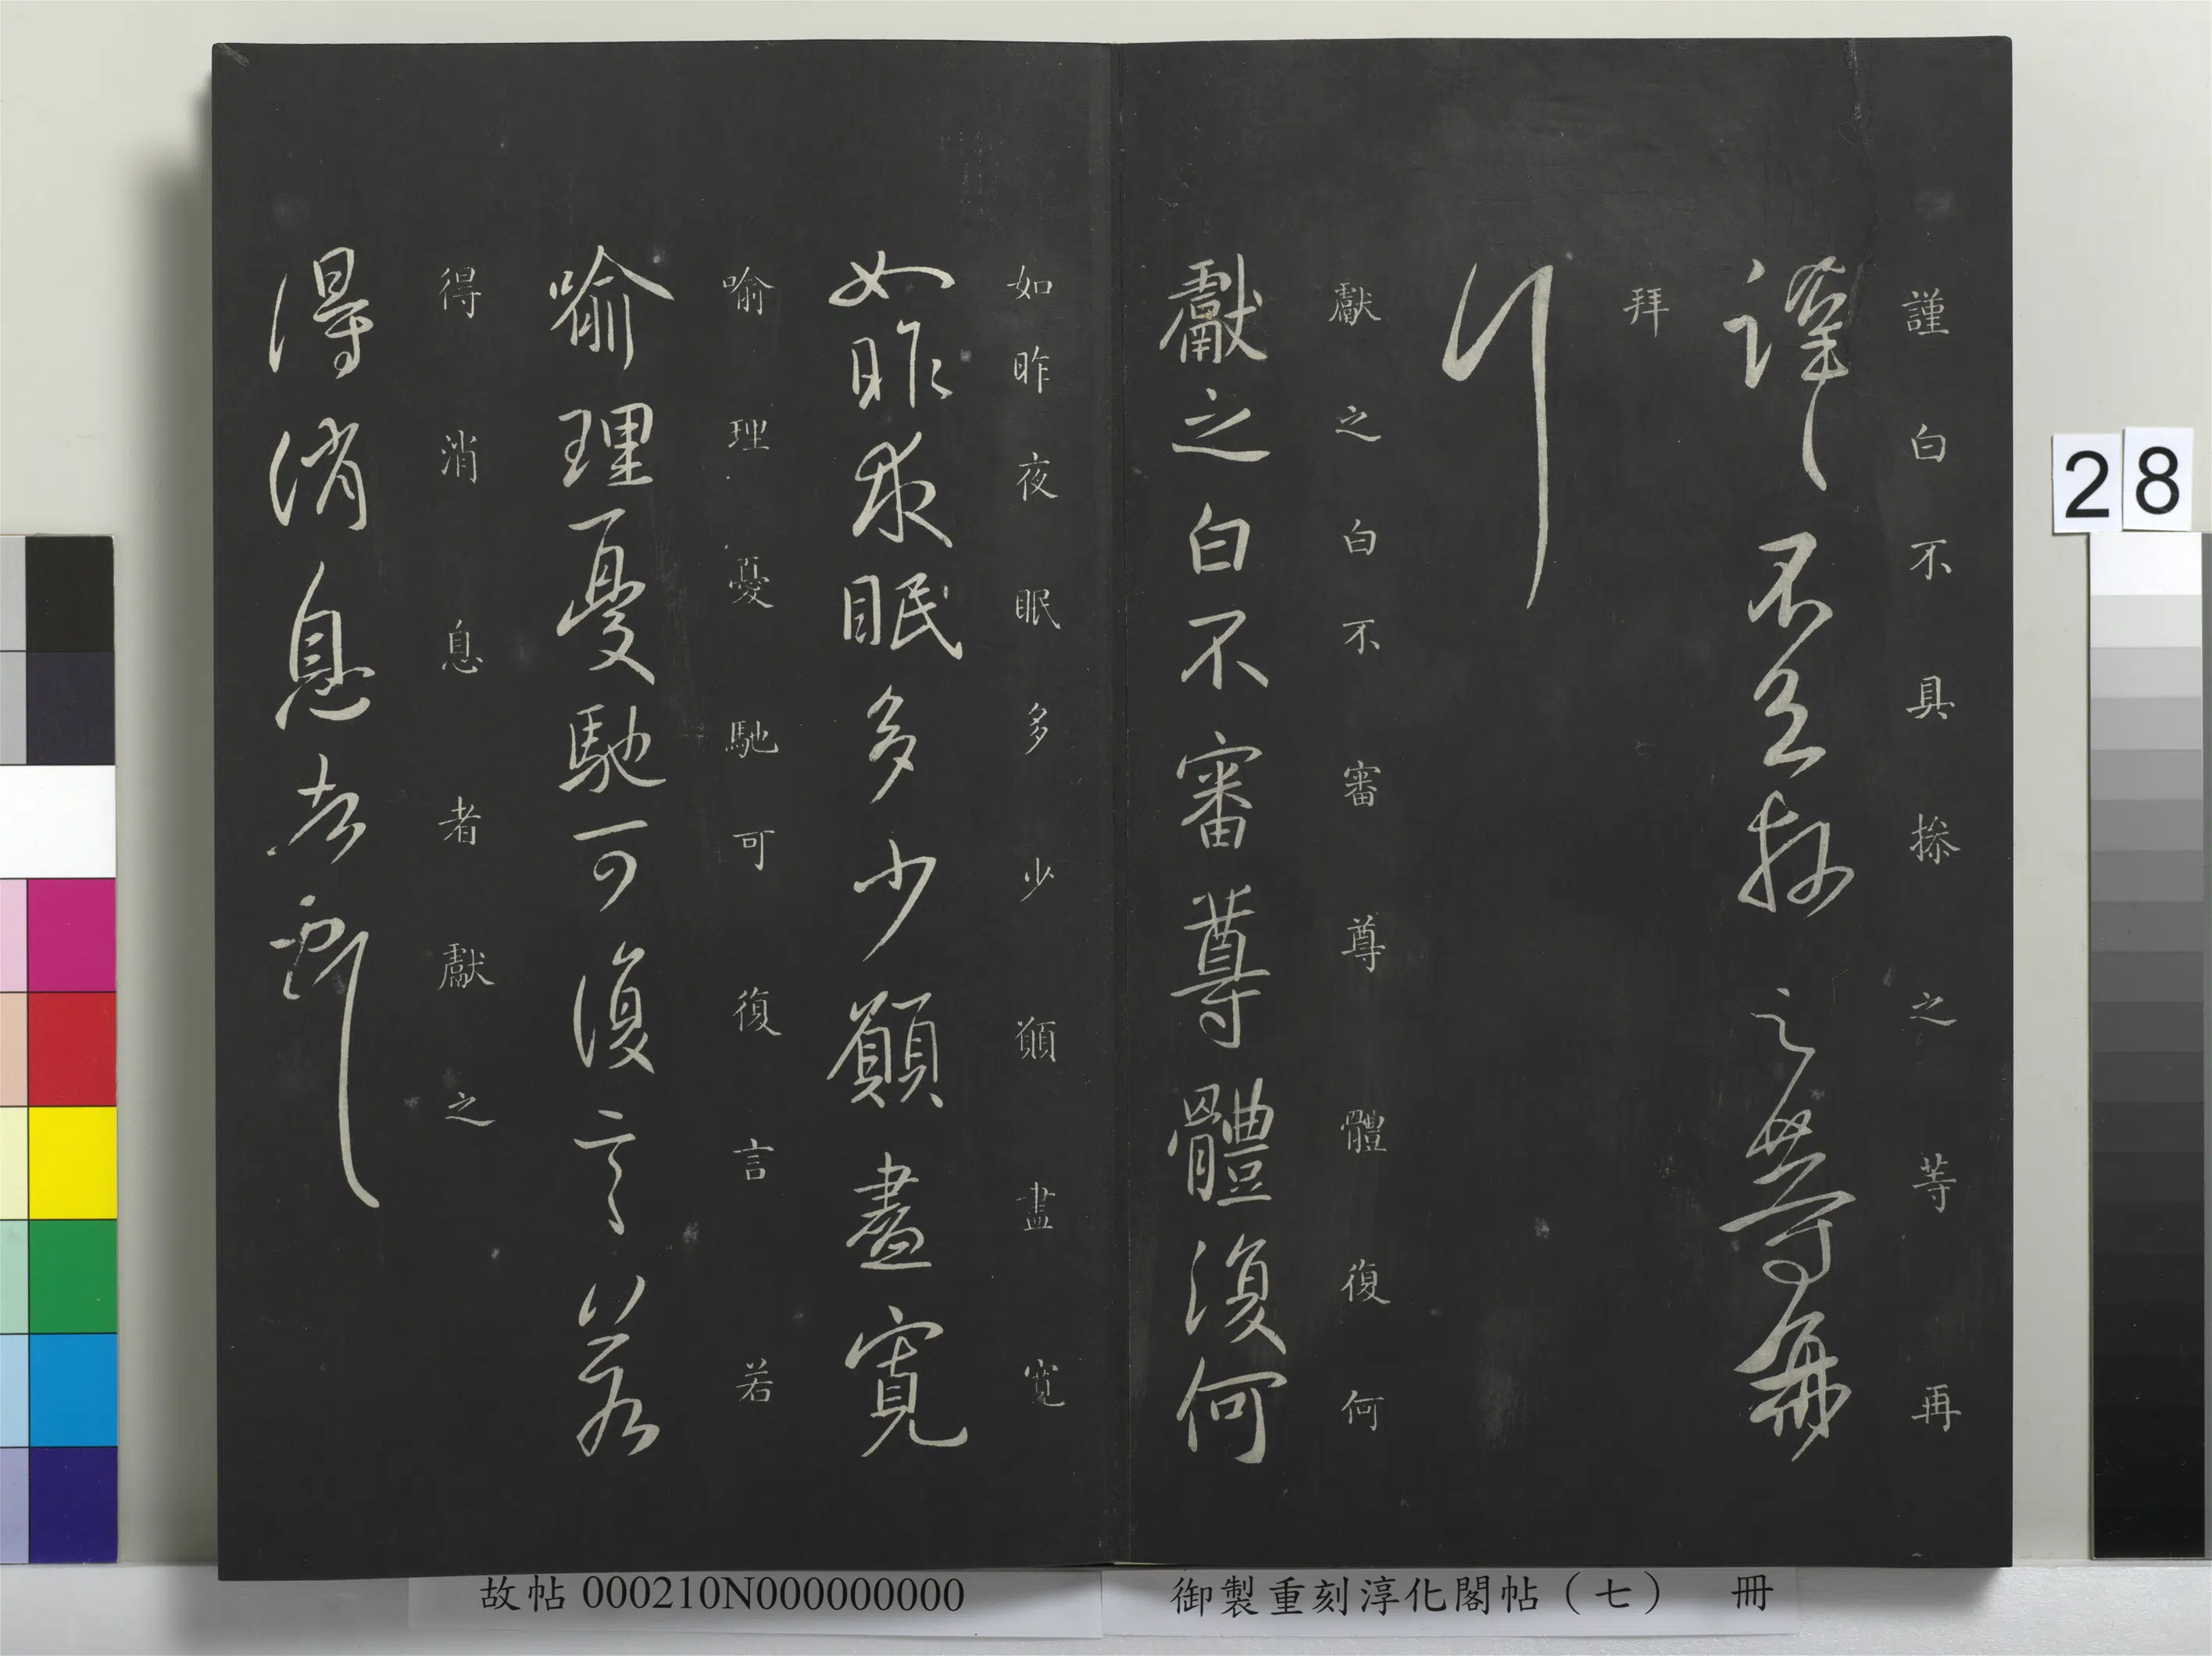 謹白不具操之等再
謹白不具操之等再
拜
拜
獻之白不審尊體復何
獻之白不審尊體復何
如昨夜眠多少願盡寬
如昨夜眠多少願盡寬
喻理憂馳可復言若
喻理憂馳可復言若
得消息者獻之
得消息者獻之
28
御製重刻淳化閣帖（七） 冊
故帖000210N000000000